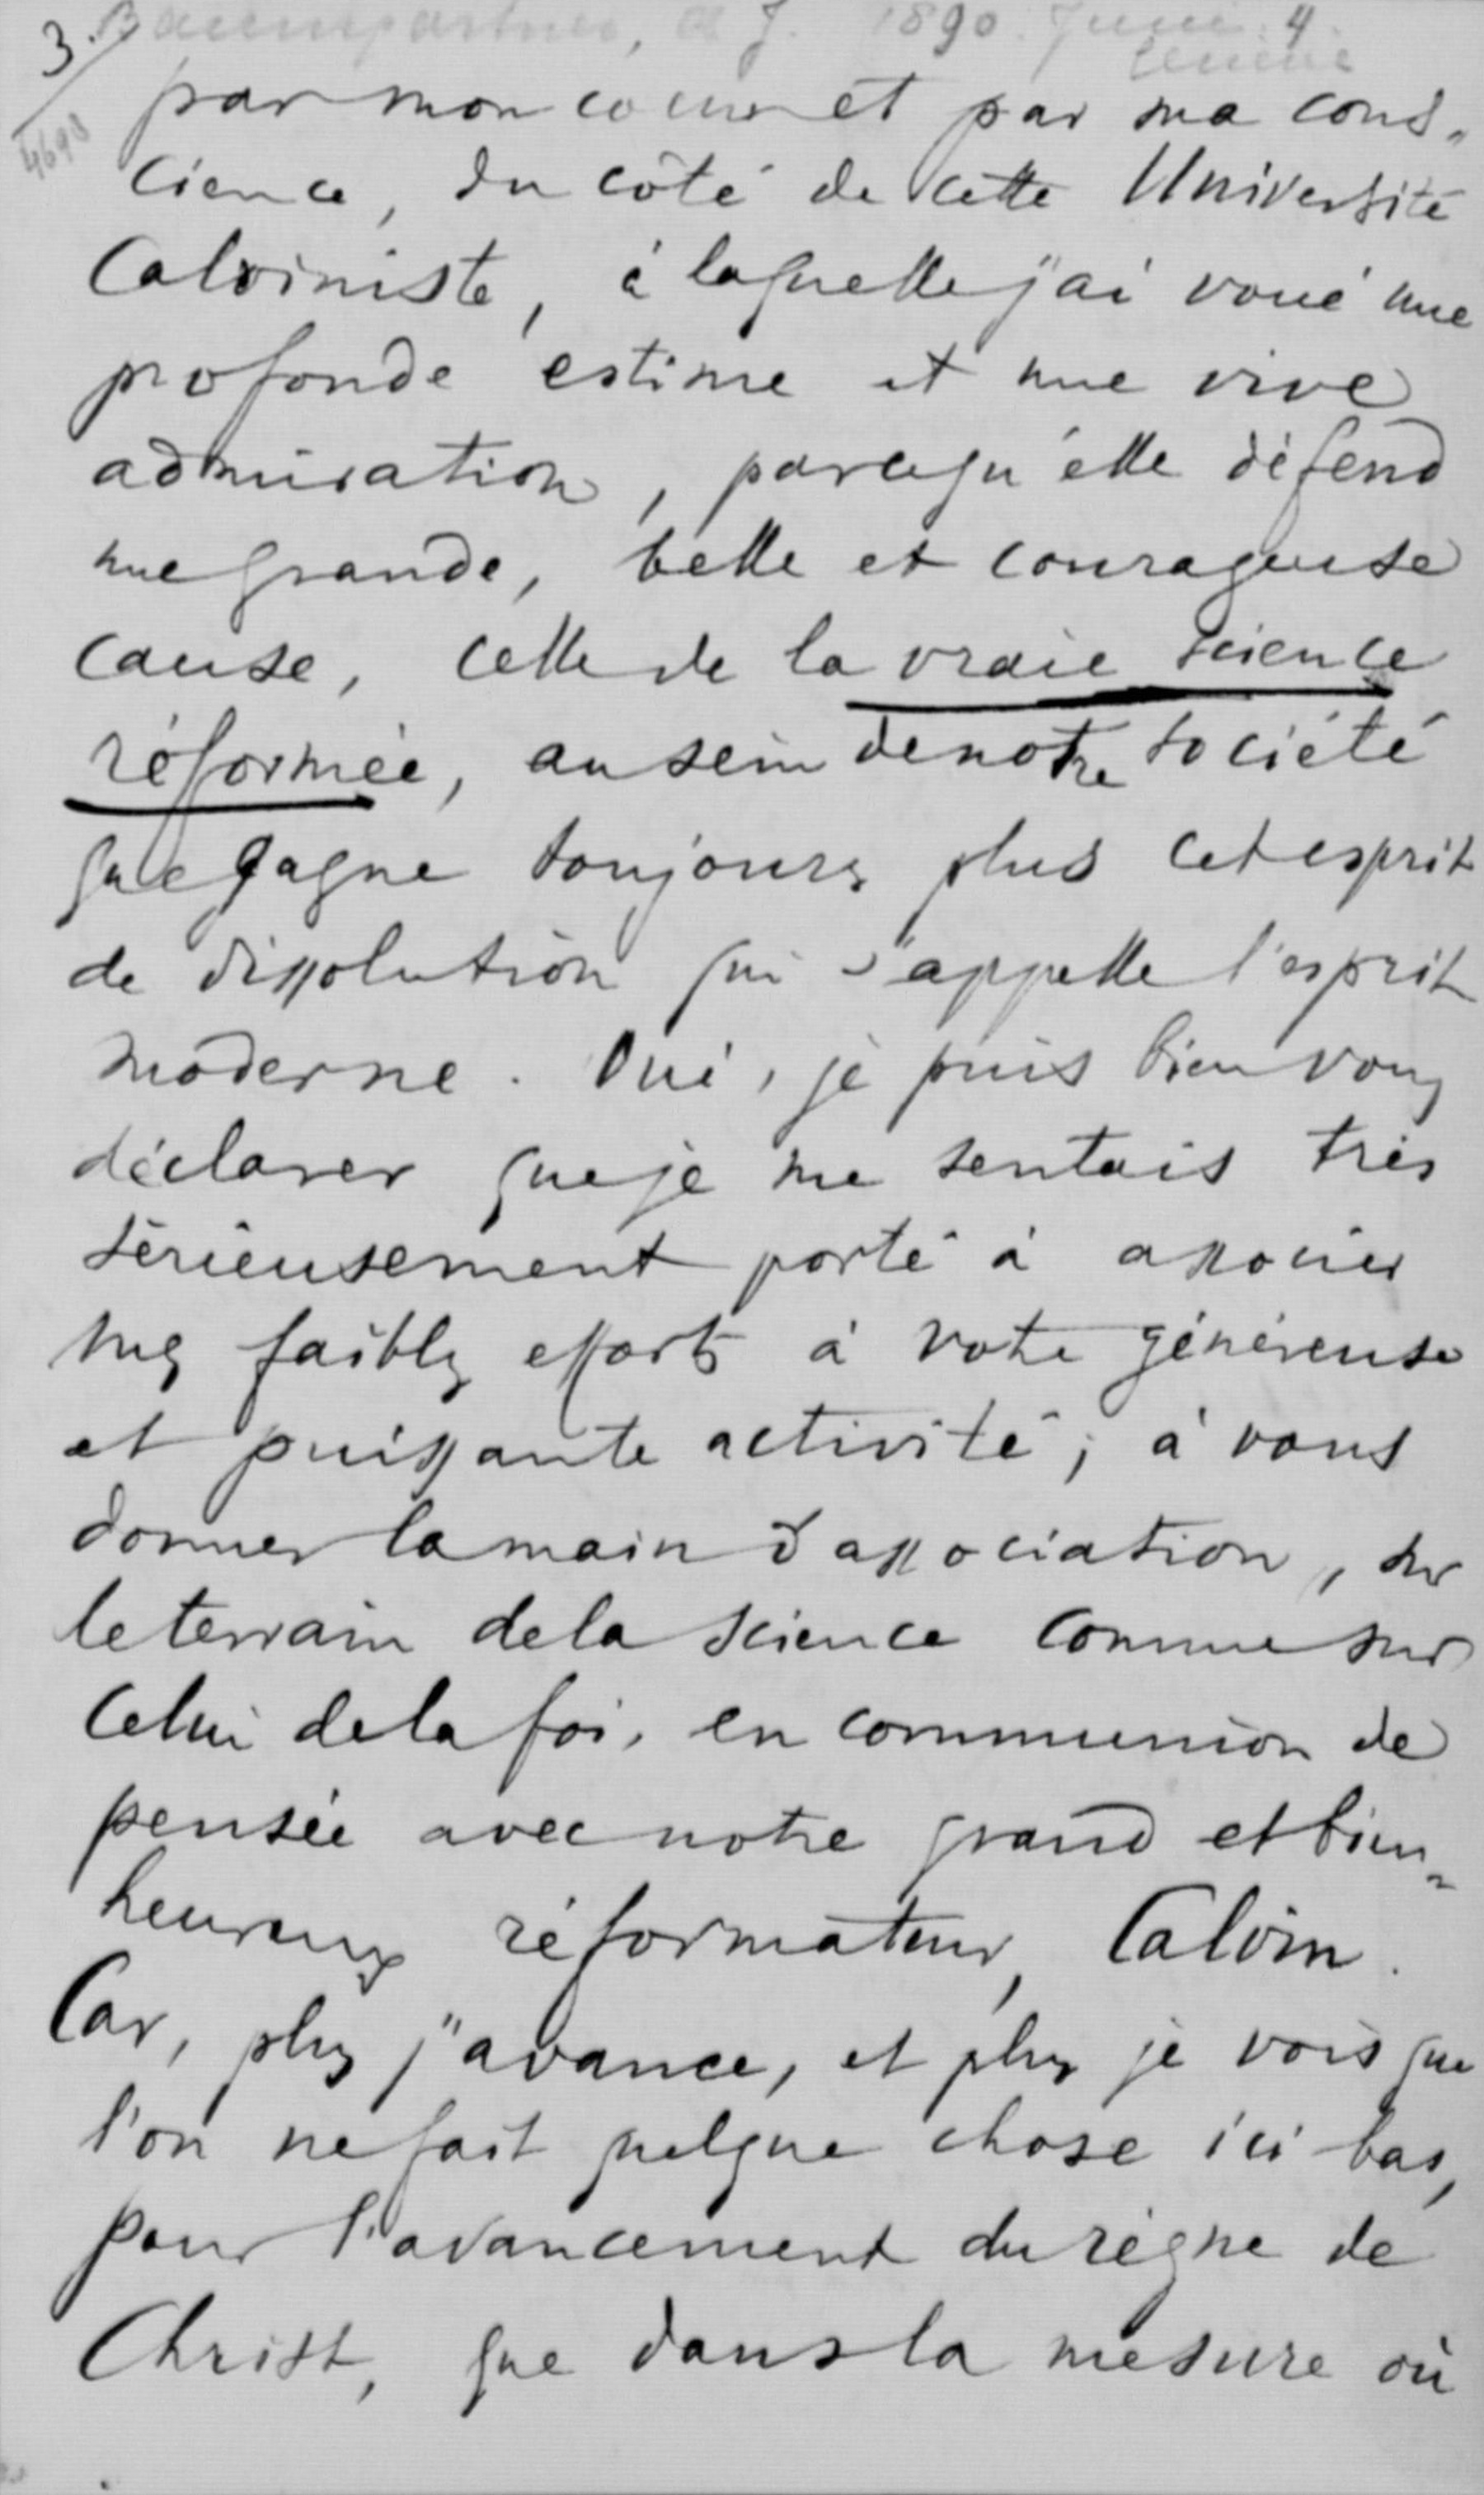 3. Baumgartner, A J. 1890. Juni 4.
4698
par mon coeur et par ma cons-
cience, du côté de cette Université
Calviniste, à laquelle j'ai voué une
profonde estime et une vive
admiration, parcequ'elle défend
une grande, belle et courageuse
cause, celle de la vraie science
réformée, au sein de notre société
que gagne toujours plus cet esprit
de dissolution qui s'appelle l'esprit
moderne. Oui, je puis bien vous
déclarer que je me sentais très
sérieusement porté à associer
mes faibles efforts à votre généreuse
et puissante activité; à vous
donner la main d'association, sur
le terrain de la science comme sur
celui de la foi, en communion de
pensée avec notre grand et bien-
heureux réformateur, Calvin.
Car, plus j'avance, et plus je vois que
l'on ne fait quelque chose ici-bas,
pour l'avancement du règne de
Christ, que dans la mesure où